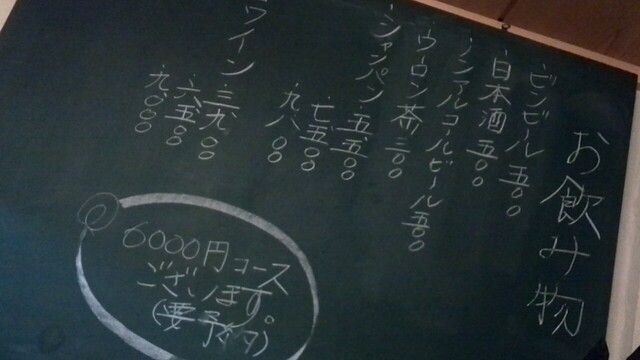 お飲み物
・ビンビール 五〇〇
・日本酒 五〇〇
・ノンアルコールビール 五〇〇
・ウーロン茶 三〇〇
・シャンパン 五、五〇〇
七、五〇〇
九、八〇〇
・ワイン 三、九〇〇
六、五〇〇
九、〇〇〇
6000円コース
ございます。
(要予約)